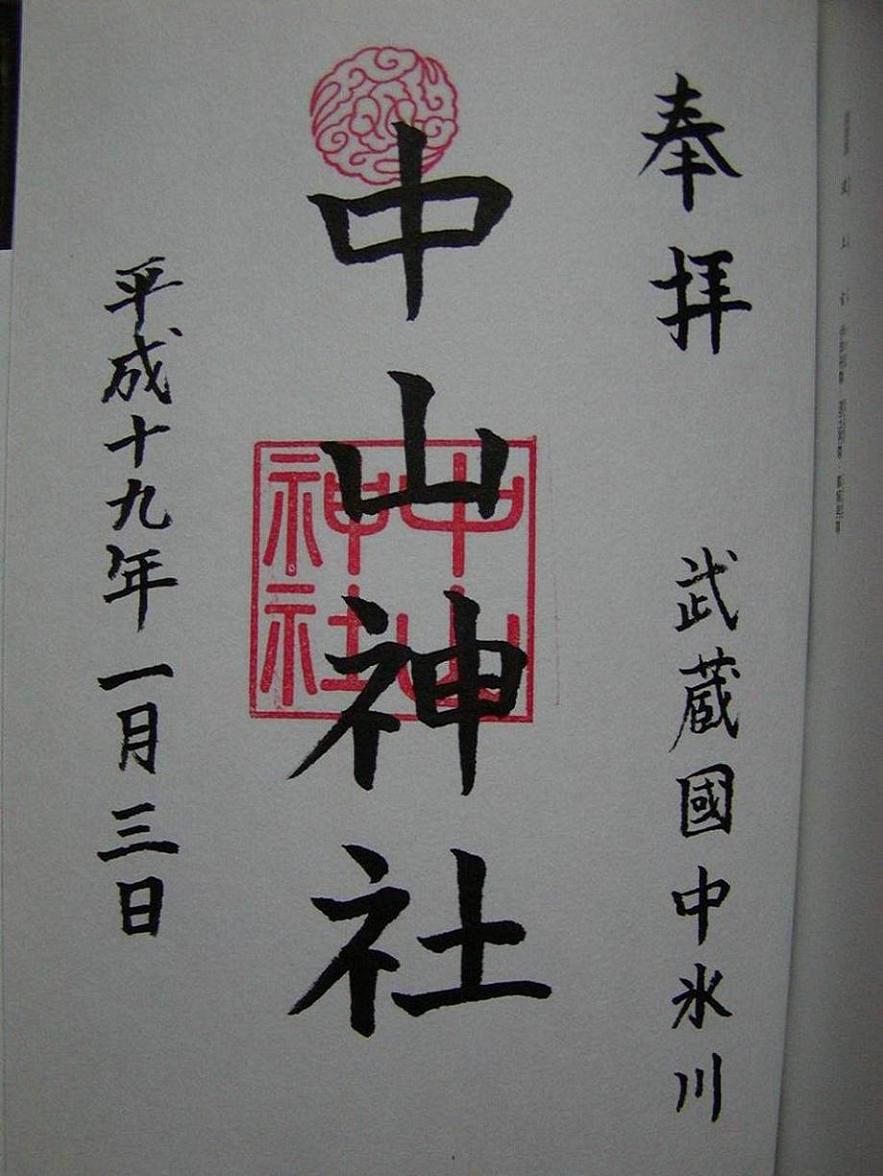 奉拝
武蔵國中氷川
中山神社
中山
神社
平成十九年一月三日